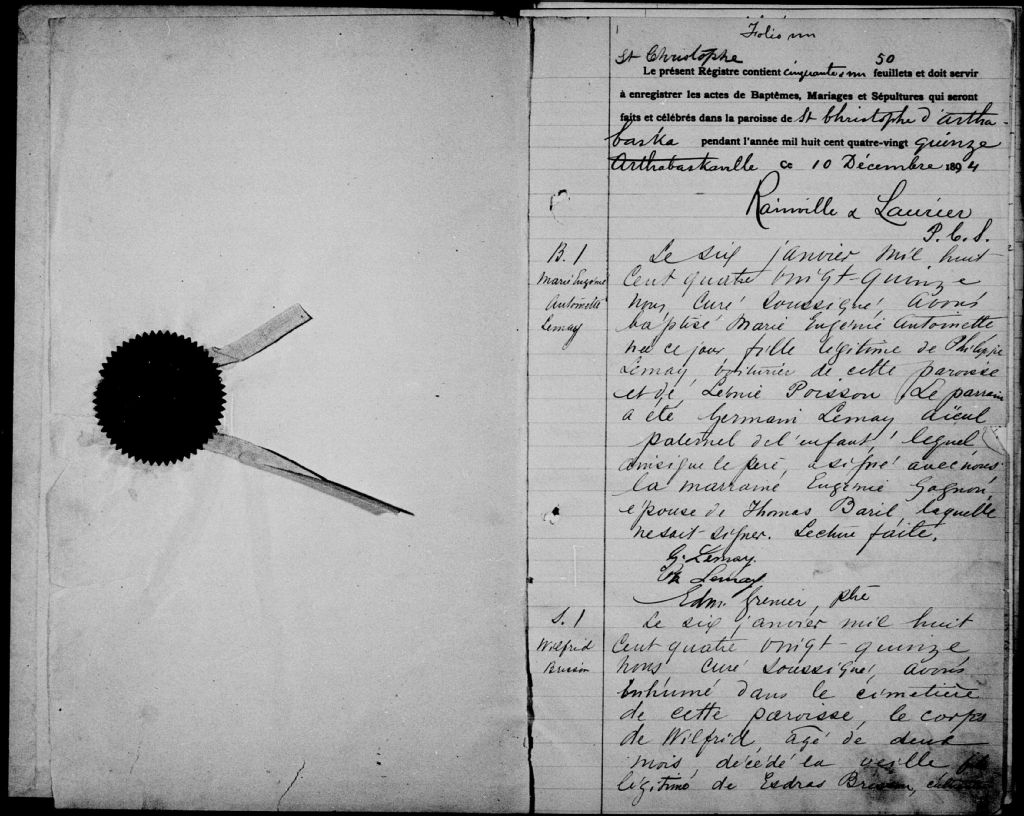 Folio un
St Christophe
Le présent Régistre contient cinquante un 50 feuillets et doit servir
à enregistrer les actes de Baptêmes, Mariages et Sépultures qui seront
faits et célébrés dans la paroisse de St Christophe d'Artha-
baska pendant l'année mil huit cent quatre-vingt quinze
Arthabaskaville Ce 10 Décembre 1894
Rainville & Laurier
P. C. S.
B. 1
Marie Eugénie
Antoinette
Lemay
Le six janvier mil huit
cent quatre vingt-quinze
nous, curé soussigné, avons
baptisé Marie Eugénie Antoinette
née ce jour fille légitime de Philippe
Lemay, voiturier de cette paroisse
et de Léonie Poisson. Le parrain
a été Germain Lemay aïeul
paternel de l'enfant, lequel
ainsi que le père, a signé avec nous
la marraine Eugénie Gagnon,
épouse de Thomas Baril, laquelle
ne sait signer. Lecture faite.
G. Lemay
Ph Lemay
Edm. Grenier, ptre
S. 1
Wilfrid
Brisson
Le six janvier mil huit
cent quatre vingt-quinze
nous curé soussigné, avons
inhumé dans le cimetière
de cette paroisse, le corps
de Wilfrid, âgé de deux
mois, décédé la veille fils
légitime de Esdras Brisson,